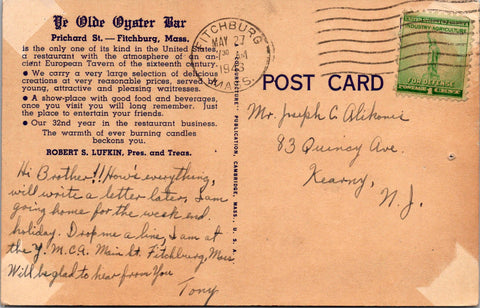 Ye Olde Oyster Bar
Prichard St. — Fitchburg, Mass.
is the only one of its kind in the United States,
a restaurant with the atmosphere of an an-
cient European Tavern of the sixteenth century.
• We carry a very large selection of delicious
creations at very reasonable prices, served by
young, attractive and pleasing waitresses.
• A show-place with good food and beverages,
once you visit you will long remember. Just
the place to entertain your friends.
• Our 32nd year in the restaurant business.
The warmth of ever burning candles
beckons you.
ROBERT S. LUFKIN, Pres. and Treas.
Hi Brother!! How's everything,
will write a letter later, I am
going home for the week end
holiday. Drop me a line, I am at
the Y.M.C.A. Main St. Fitchburg, Mass
Will be glad to hear from You
Tony
PUBLICATION, CAMBRIDGE, MASS., U. S. A.
FITCHBURG
MAY 27
MASS.
INDUSTRY AGRICULTURE
FOR DEFENSE
POSTAGE 1 CENT
POST CARD
Mr. Joseph C Alikonis
83 Quincy Ave.
Kearny,
N. J.